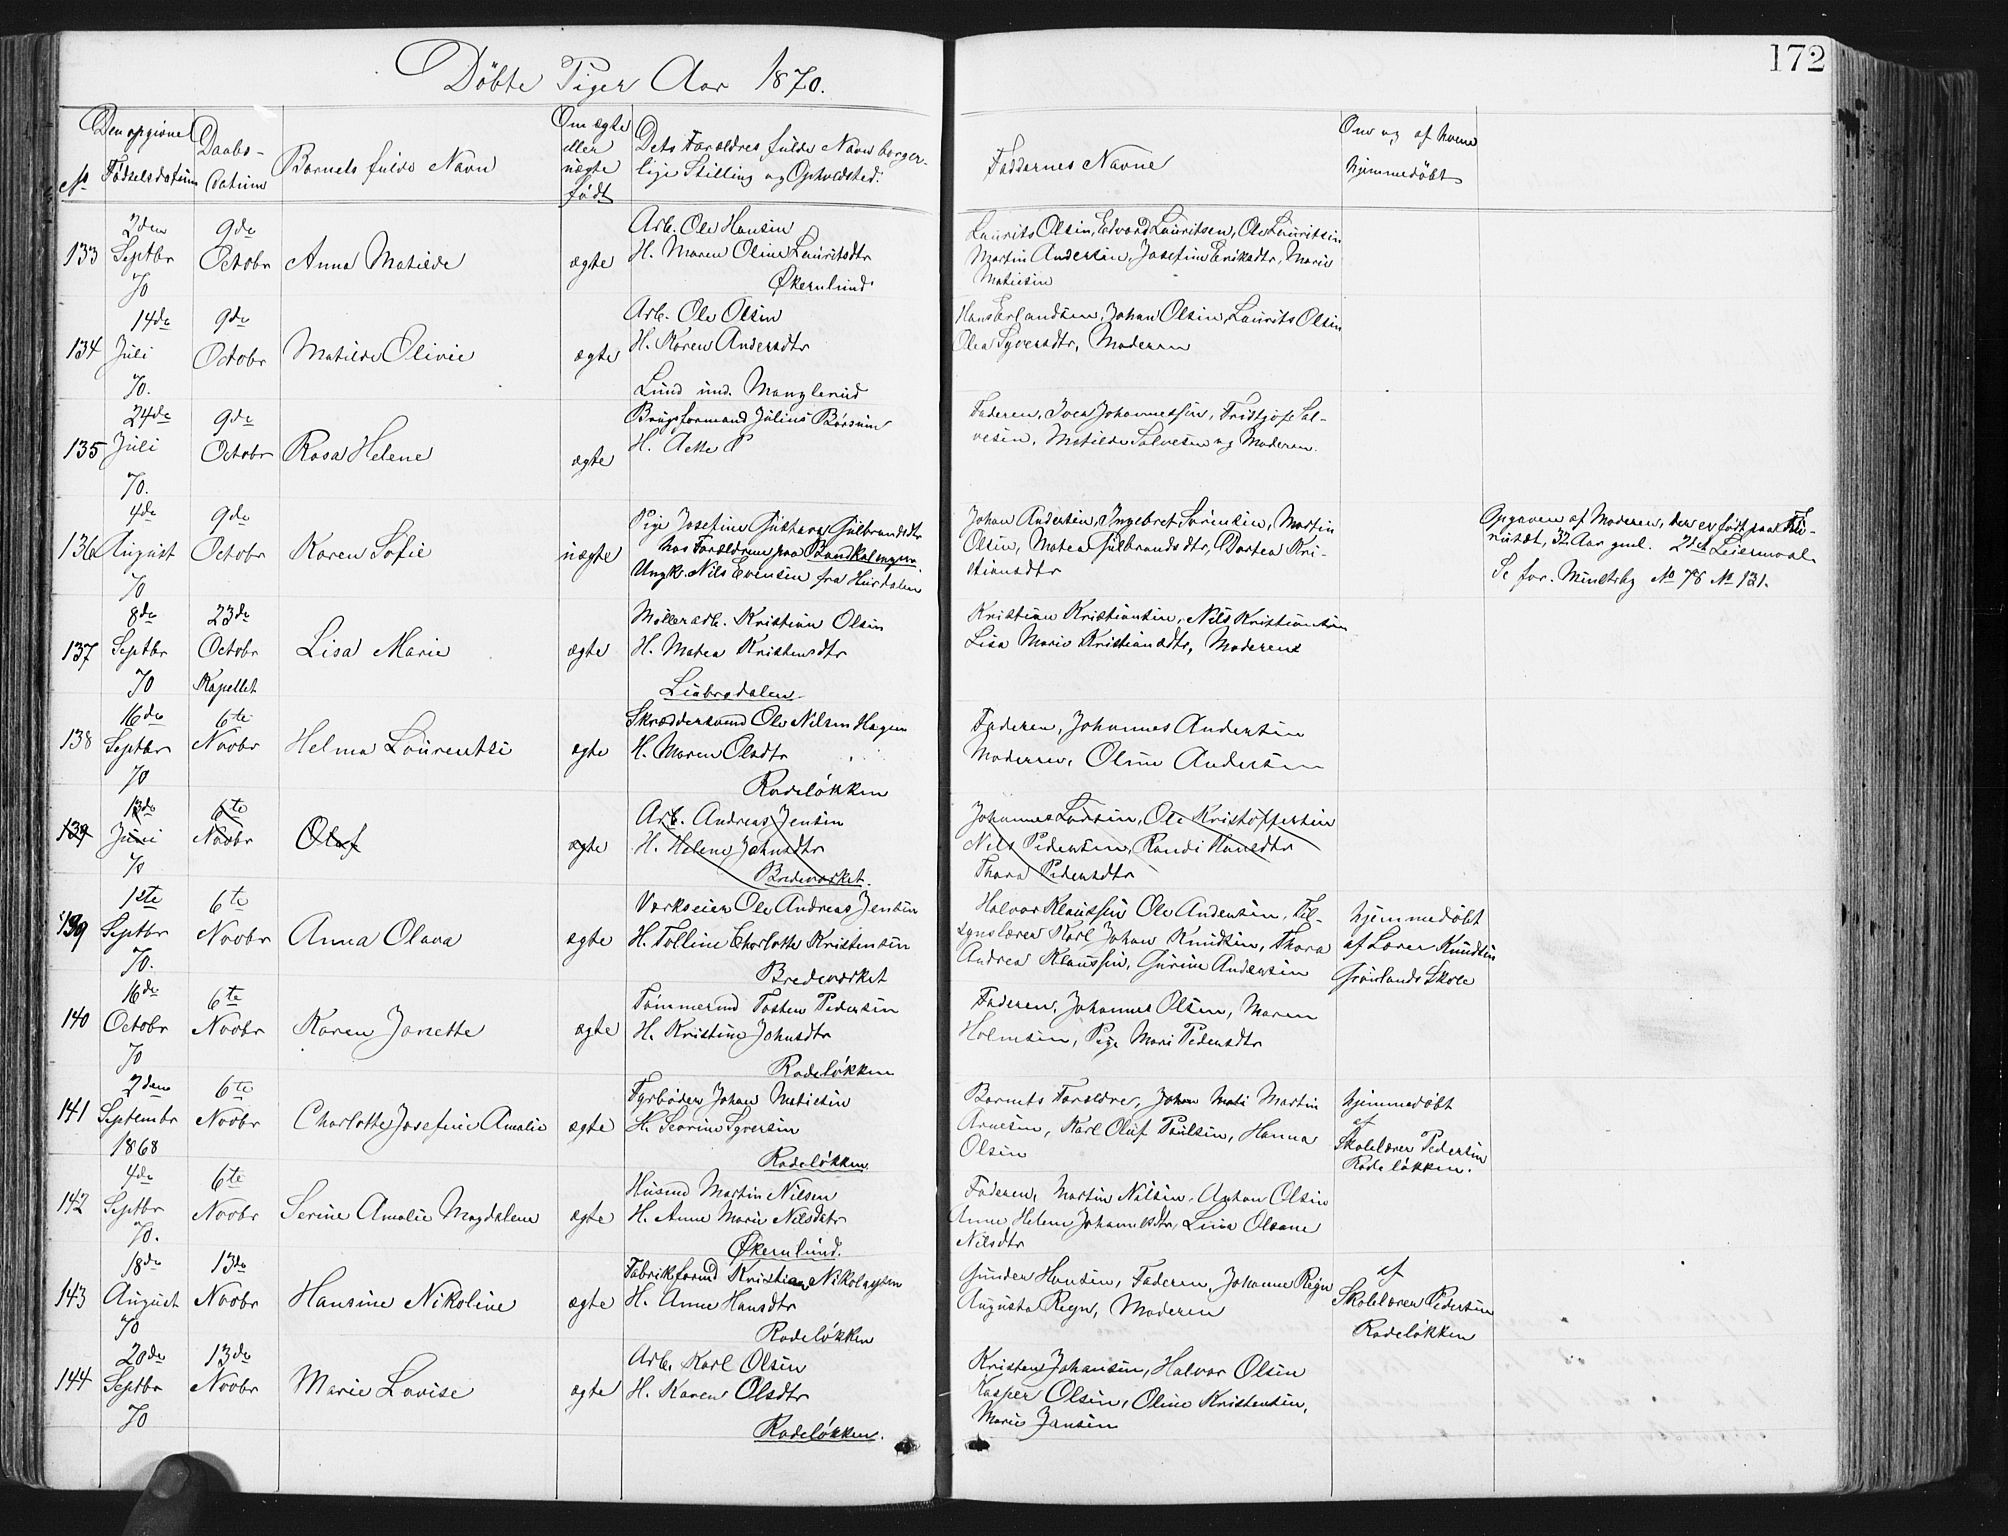 172
Döbte Piger Aar 1870.
No
Den opgivne Fødselsdatum
Daabs-Datum
Barnets fulde Navn
Om ægte eller uægte født
Dets Forældres fulde Navn borger-
lige Stilling og Opholdsted.
Faddernes Navne
Om og af hvem
hjemmedöbt
133 2den Septbr 70 9de Octobr Anna Matilde ægte
Arb. Ole Hansen
H. Maren Oline Lauritsdtr
Økernlund
Laurits Olsen, Edvard Lauritsen, Ole Lauritsen
Martin Andersen, Josefine Eriksdtr, Marie
Matiesen
134 14de Juli 70. 9de Octobr Matilde Olivie ægte
Arb. Ole Olsen
H. Karen Andersdtr
Lund und. Manglerud
Hans Erlandsen, Johan Olsen, Laurits Olsen
Olea Syversdtr, Moderen
135 24de Juli 70. 9de Octobr Rosa Helene ægte
Brugsformand Julius Börsum
H. P
Faderen, Iver Johannessen, Fridtjofe Sal-
vesen, Matilde Salvesen og Moderen.
136 4de August 70 9de Octobr Karen Sofie uægte
Pige Josefine Gustava Gulbrandsdtr
hos Forældrene paa
Ungk. Nils Evensen fra Hurdalen
Johan Andersen, Ingebret Sörensen, Martin
Olsen, Matea Gulbrandsdtr, Dortea Kri-
stiansdtr
Opgaven af Moderen, der er født paa
32 Aar gml. 2det Leiermaal.
Se for. No 78 No 131.
137 8de Septbr 70 23de Octobr Kapellet Lisa Marie ægte
Möllerarb. Kristian Olsen
H. Matea Kristensdtr
Liabrodalen
Kristian Kristiansen, Nils Kristiansen
Lisa Marie Kristiansdtr, Moderen
138 16de Septbr 70 6te Novbr Helma Laurentse ægte
Skræddersvend Ole Nilsen Hagen
H. Maren Olsdtr
Rodeløkken
Faderen, Johannes Andersen
Moderen, Oline Andersen
139 13de Juni 70 6te Novbr Olaf ægte
Arb. Andreas Jensen
H. Helene Johnsdtr
Bredevasket.
Johannes Larsen, Ole Kristoffersen
Nils Pedersen, Randi Hansdtr
Thora Pedersdtr
139 1ste Septbr 70. 6te Novbr Anna Olava ægte
Værkseier Ole Andreas Jensen
H. Tolline Charlotte Kristensen
Bredevasket
Halvor Klaussen Ole Andersen, Til-
synslærer Karl Johan Knudsen, Thora
Andrea Klaussen, Gurine Andersen
hjemmedöbt
af Lærer Knudsen
Grönlands Skole
140 16de Octobr 70 6te Novbr Karen Janette ægte
Tömmermd Tosten Pedersen
H. Kristine Johnsdtr
Rodeløkken
Faderen, Johannes Olsen, Maren
Holmsen, Pige Mari Pedersdtr
141 2den Septembr 1868 6te Novbr Charlotte Josefine Amalie ægte
Fyrböder Johan Matiesen
H. Severine Syversen
Rodeløkken
Barnets Forældre, Johan Mati Martin
Arnesen, Karl Oluf Paulsen, Hanna
Olsen
hjemmedöbt
af
Skolelærer Pedersen
Rodeløkken.
142 4de Septbr 70. 6te Novbr Serine Amalie Magdalene ægte
Husmd Martin Nilsen
H. Anne Marie Nilsdatr
Økernlund.
Faderen, Martin Nilsen, Anton Olsen
Anne Helene Johannesdtr, Lina Olsen
Nilsdtr
143 18de August 70 13de Novbr Hansine Nikoline ægte
Fabrikformd Kristian Nikolaysen
H. Anne Hansdtr
Rodeløkken
Gunder Hansen, Faderen, Johanne Regn
Augusta Regn, Moderen
af
Skolelærer Pedersen
Rodeløkken
144 20de Septbr 70 13de Novbr Marie Lovise ægte
Arb. Karl Olsen
H. Karen Olsdtr
Rodeløkken.
Kristen Johansen, Halvor Olsen
Kasper Olsen, Oline Kristensen,
Marie Jansen